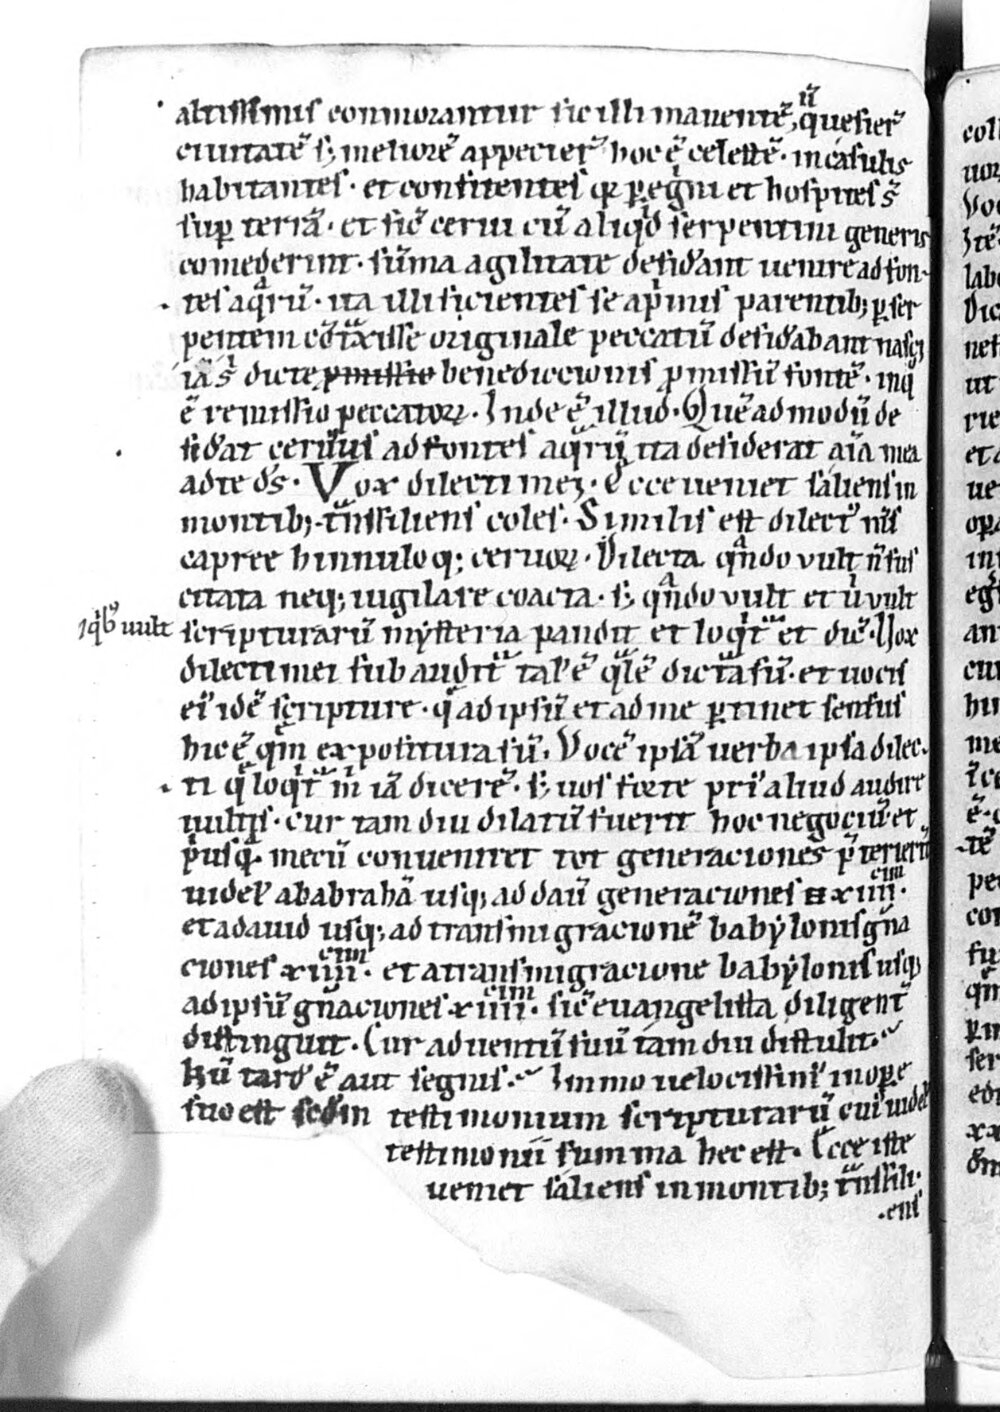 altissimis conmorantur sic illi manente᷒ ũ quesier᷒
ciuitatē s; meliorē appecier᷒ hoc ē celestē · in casulis
habitantes · et confitentes qꝛ ꝑegⁱni et hospites s̄
suꝑ terrā · et sič cerui cū aliqͦd serpentini generis
comederint · sūma agilitate desidᷓant uenire ad fon-
tes aqᷓrū · ita illi scientes se a pⁱmis parentib; ꝑ ser
pentem cōtᷓxisse originale peccatū desidᷓabant nasci
dicte benediccionis ꝓmissū fontē · in qͦ
ē remissio peccatoꝝ · Inde ē illud · Quēadmodū de
sidᷓat ceruus ad fontes aqᷓrū ita desiderat aīa mea
ad te ds̄ · Vox dilecti mei · Ecce ueniet saliens in
montib; · tᷓnssiliens coles · Similis est dilectꝰ m̄s
capree hinnuloq; ceruoꝝ · Dilecta qᷓndo vult n̄ sus
citata neq; uigilare coacta · s; qᷓndo vult et uͥ vult
⁊ qͥbꝫ uult scripturarū mysteria pandit et loqⁱtᷣ et dič · Vox
dilecti mei subauditᷣ tal̓ ē qᷓlē dictᷓa sū · et uocis
eiꝰ idē scripture · qͥ ad ipsū et ad me ꝑtinet sensus
hic ē qm̄ expositura sū · Vocē ipsā uerba ipsa dilec-
ti qͥ loqⁱtᷣ mͥ iā dicerē · s; uos forte priꝰ aliud audire
uultis · cur tam diu dilatū fuerit hoc negociū et
pⁱusqᷓ mecū conueniret tot generaciones p̄terierū᷒
uidel̓ ab abrahā usq; ad dauͩ generaciones xiiii cim ·
et a dauid usq; ad transmigracionē babylonis gn̄a
ciones xiiii cim · et a transmigracione babylonis usq;
ad ipsū gn̄aciones xiiii cim · sič euangelista diligent᷒
distinguit · Cur aduentū suū tam diu distulit ·
Nū tardꝰ ē aut segnis · Immo uelocissimꝰ in oꝑe
suo est scdm̄ testimonium scripturarū cuiꝰ uidel̓
testimonii summa hec est · Ecce iste
ueniet saliens in montib; tᷓnssili-
ens